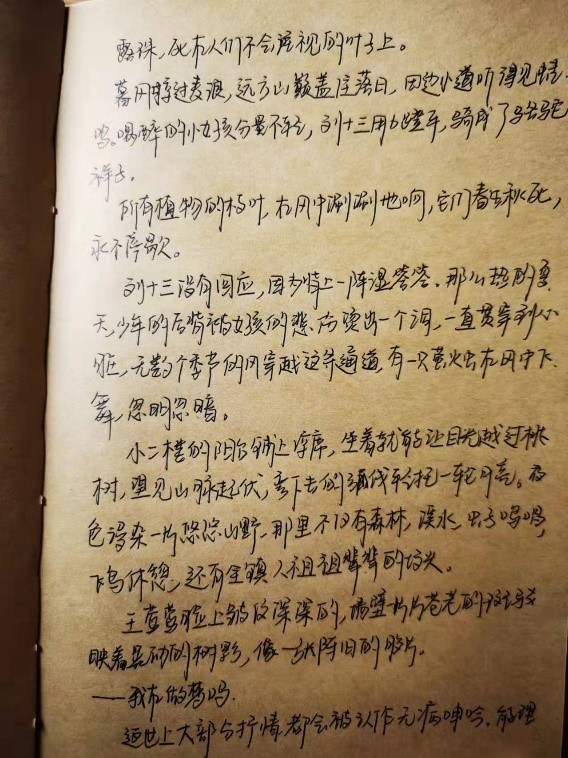 露珠，死在人们不会注视的叶子上。
暮风掠过麦浪，远方山巅盖住落日，田边小道听得见蛙
鸣。喝醉的小女孩分量不轻，刘十三用力蹬车，骑成了骆驼
祥子。
所有植物的枝叶，在风中唰唰地响，它们春生秋死，
永不停歇。
刘十三没有回应，因为背上一阵湿答答。那么热的夏
天，少年的后背被女孩的悲伤烫出一个洞，一直贯穿到心
脏，无数个季节的风穿越这条通道，有一只萤火虫在风中飞
舞，忽明忽暗。
小二楼的阳台铺上凉席，坐着就能让目光越过桃
树，望见山脉起伏，弯下去的弧线轻托一轮月亮。夜
色浸染一片悠悠山野，那里不仅有森林，溪水，虫子鸣唱，
飞鸟休憩，还有全镇人祖祖辈辈的坟头。
王莺莺脸上皱纹深深的，墙壁片片苍老的
映着晃动的树影，像一张陈旧的胶片。
——我在做梦吗。
这世上大部分抒情都会被认作无病呻吟，能理